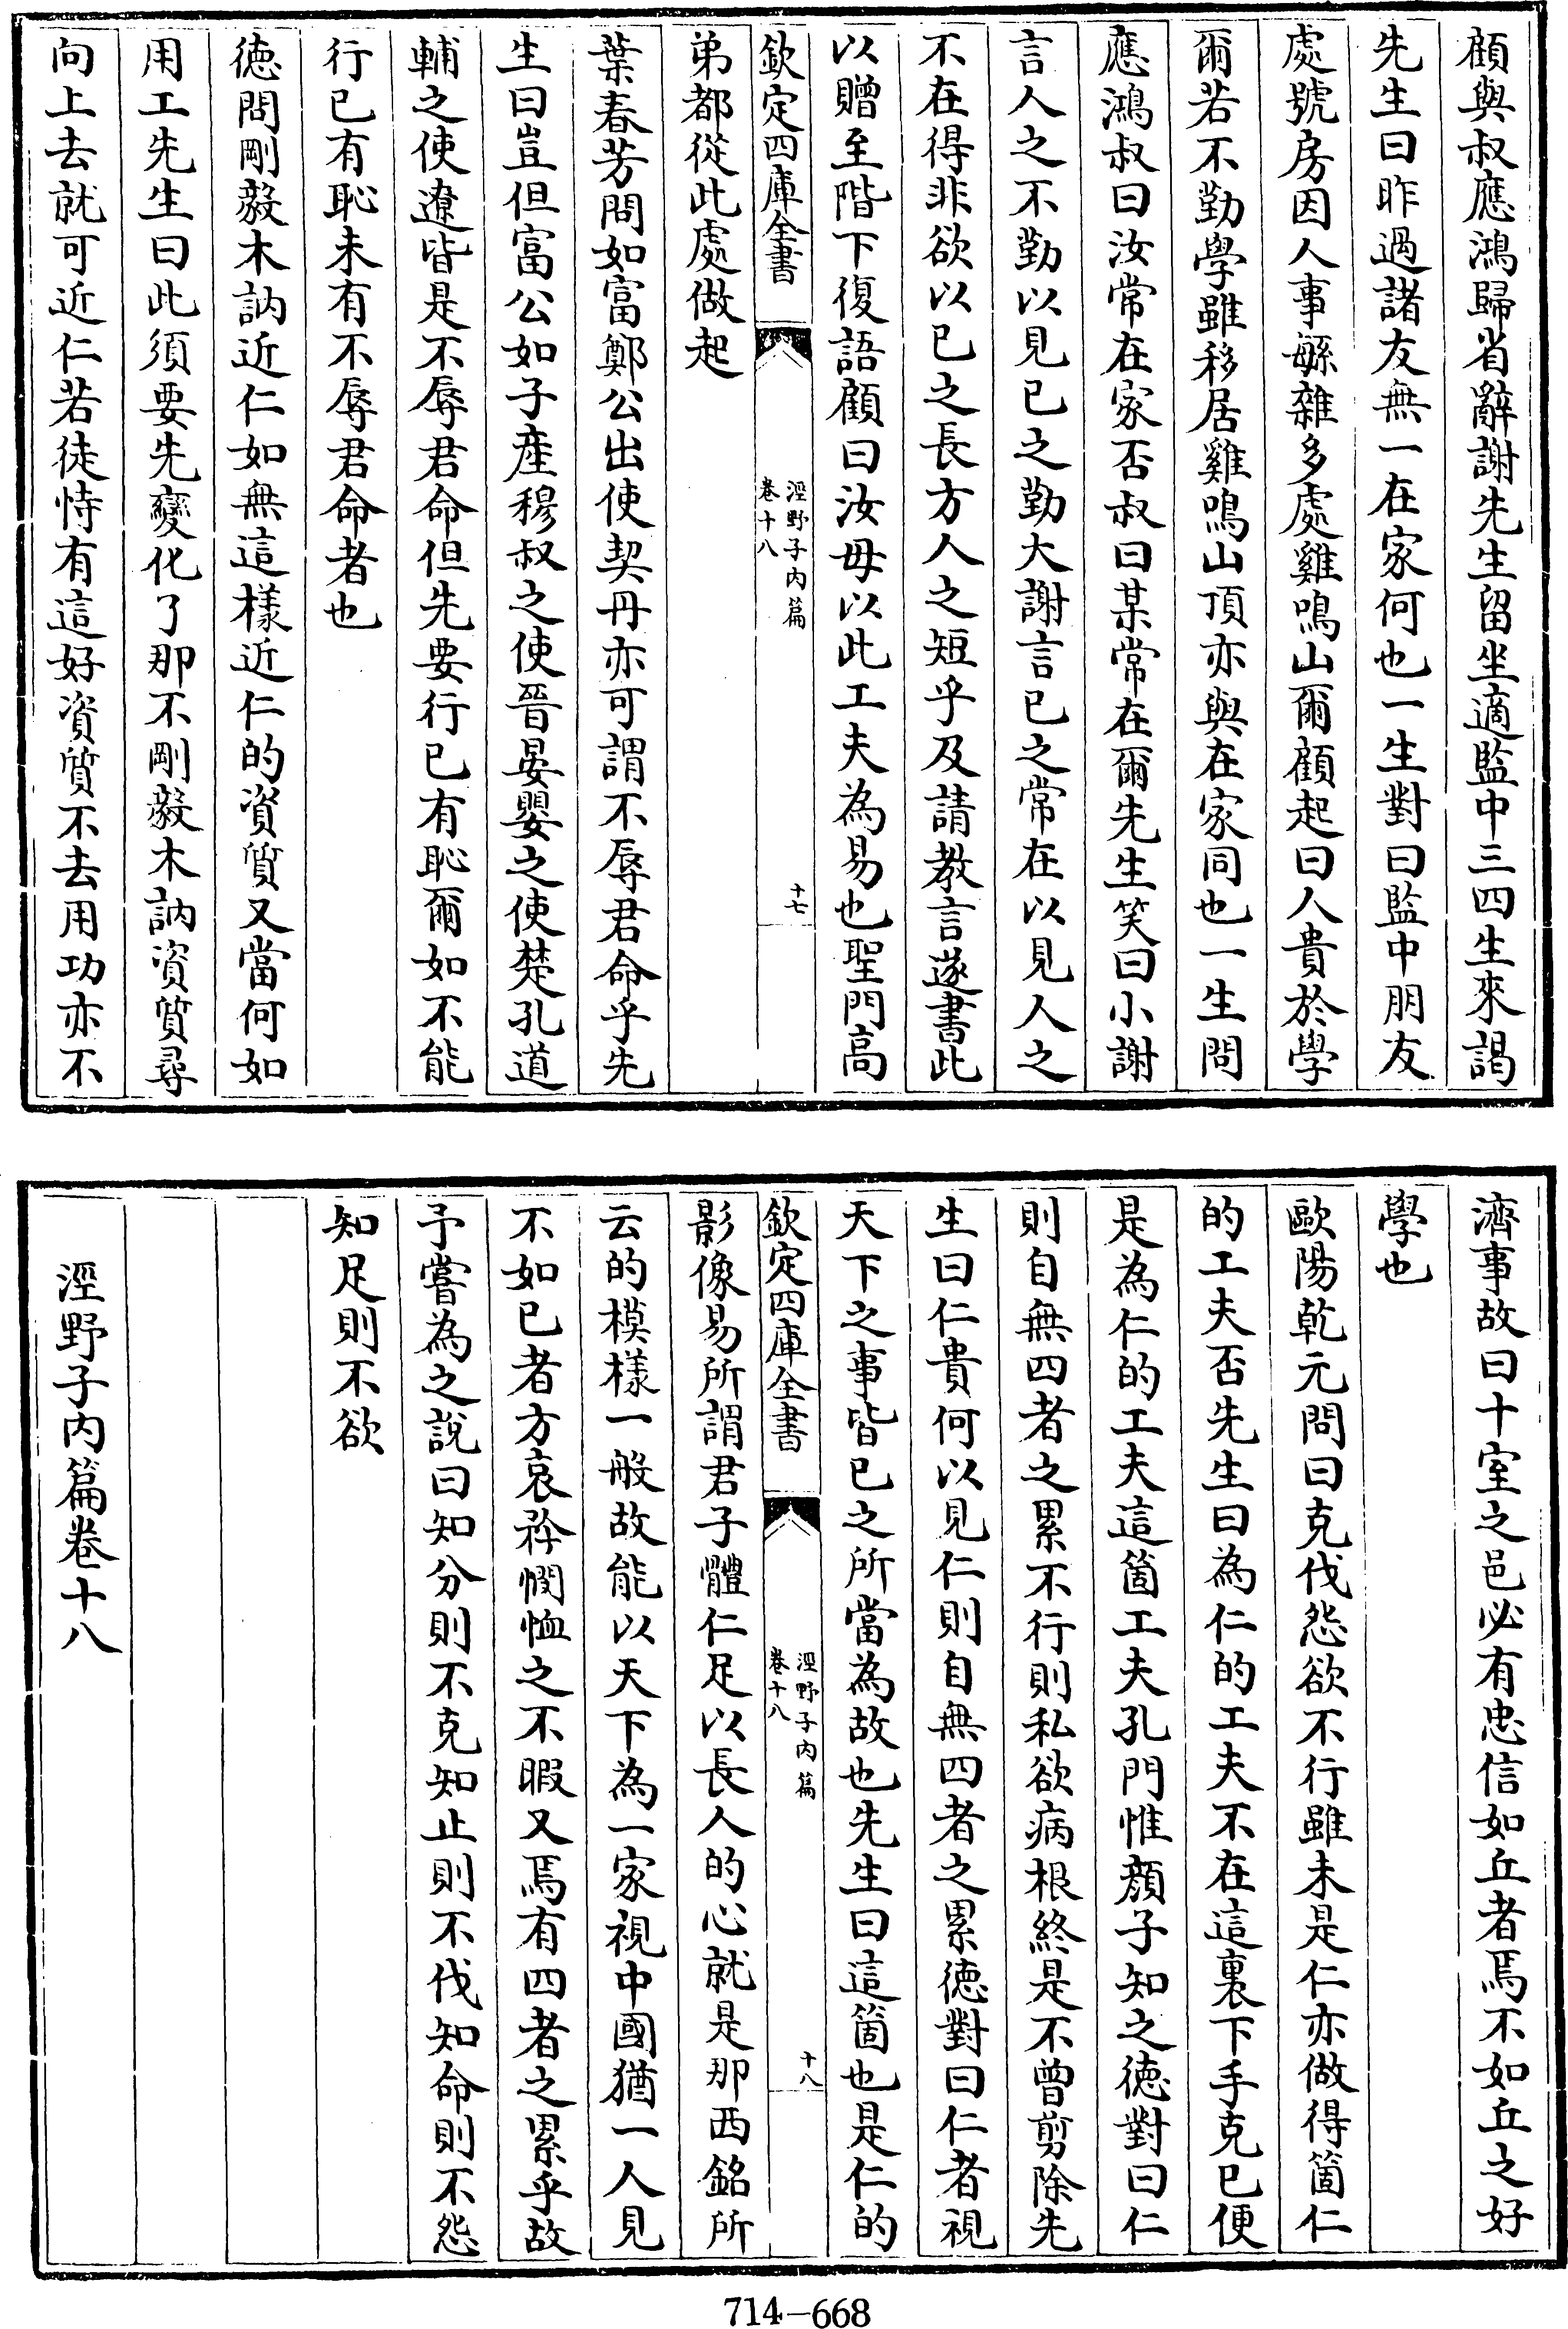 顧與叔應鴻歸省辭謝先生留坐適監中三四生來謁
先生曰昨過諸友無一在家何也一生對曰監中朋友
處號房因人事繇雜多處雞鳴山爾顧起曰人貴於學
爾若不勤學雖移居雞鳴山頂亦與在家同也一生問
應鴻叔曰汝常在家否叔曰某常在爾先生笑曰小謝
言人之不勤以見已之勤大謝言已之常在以見人之
不在得非欲以已之長方人之短乎及請教言遂書此
以贈至階下復語顧曰汝毋以此工夫為易也聖門高
欽定四庫全書
涇野子內篇
卷十八
十七
弟都從此處做起
葉春芳問如富鄭公出使契丹亦可謂不辱君命乎先
生曰豈但富公如子産穆叔之使晉晏嬰之使楚孔道
輔之使遼皆是不辱君命但先要行已有恥爾如不能
行已有恥未有不辱君命者也
徳問剛毅木訥近仁如無這樣近仁的資質又當何如
用工先生曰此須要先變化了那不剛毅木訥資質尋
向上去就可近仁若徒恃有這好資質不去用功亦不
濟事故曰十室之邑必有忠信如丘者焉不如丘之好
學也
歐陽乾元問曰克伐怨欲不行雖未是仁亦做得箇仁
的工夫否先生曰為仁的工夫不在這裏下手克已便
是為仁的工夫這箇工夫孔門惟顔子知之徳對曰仁
則自無四者之累不行則私欲病根終是不曾剪除先
生曰仁貴何以見仁則自無四者之累徳對曰仁者視
天下之事皆已之所當為故也先生曰這箇也是仁的
欽定四庫全書
涇野子內篇
卷十八
十八
影像易所謂君子體仁足以長人的心就是那西銘所
云的模樣一般故能以天下為一家視中國猶一人見
不如已者方哀矜憫恤之不暇又焉有四者之累乎故
予嘗為之說曰知分則不克知止則不伐知命則不怨
知足則不欲
涇野子內篇卷十八
714-668